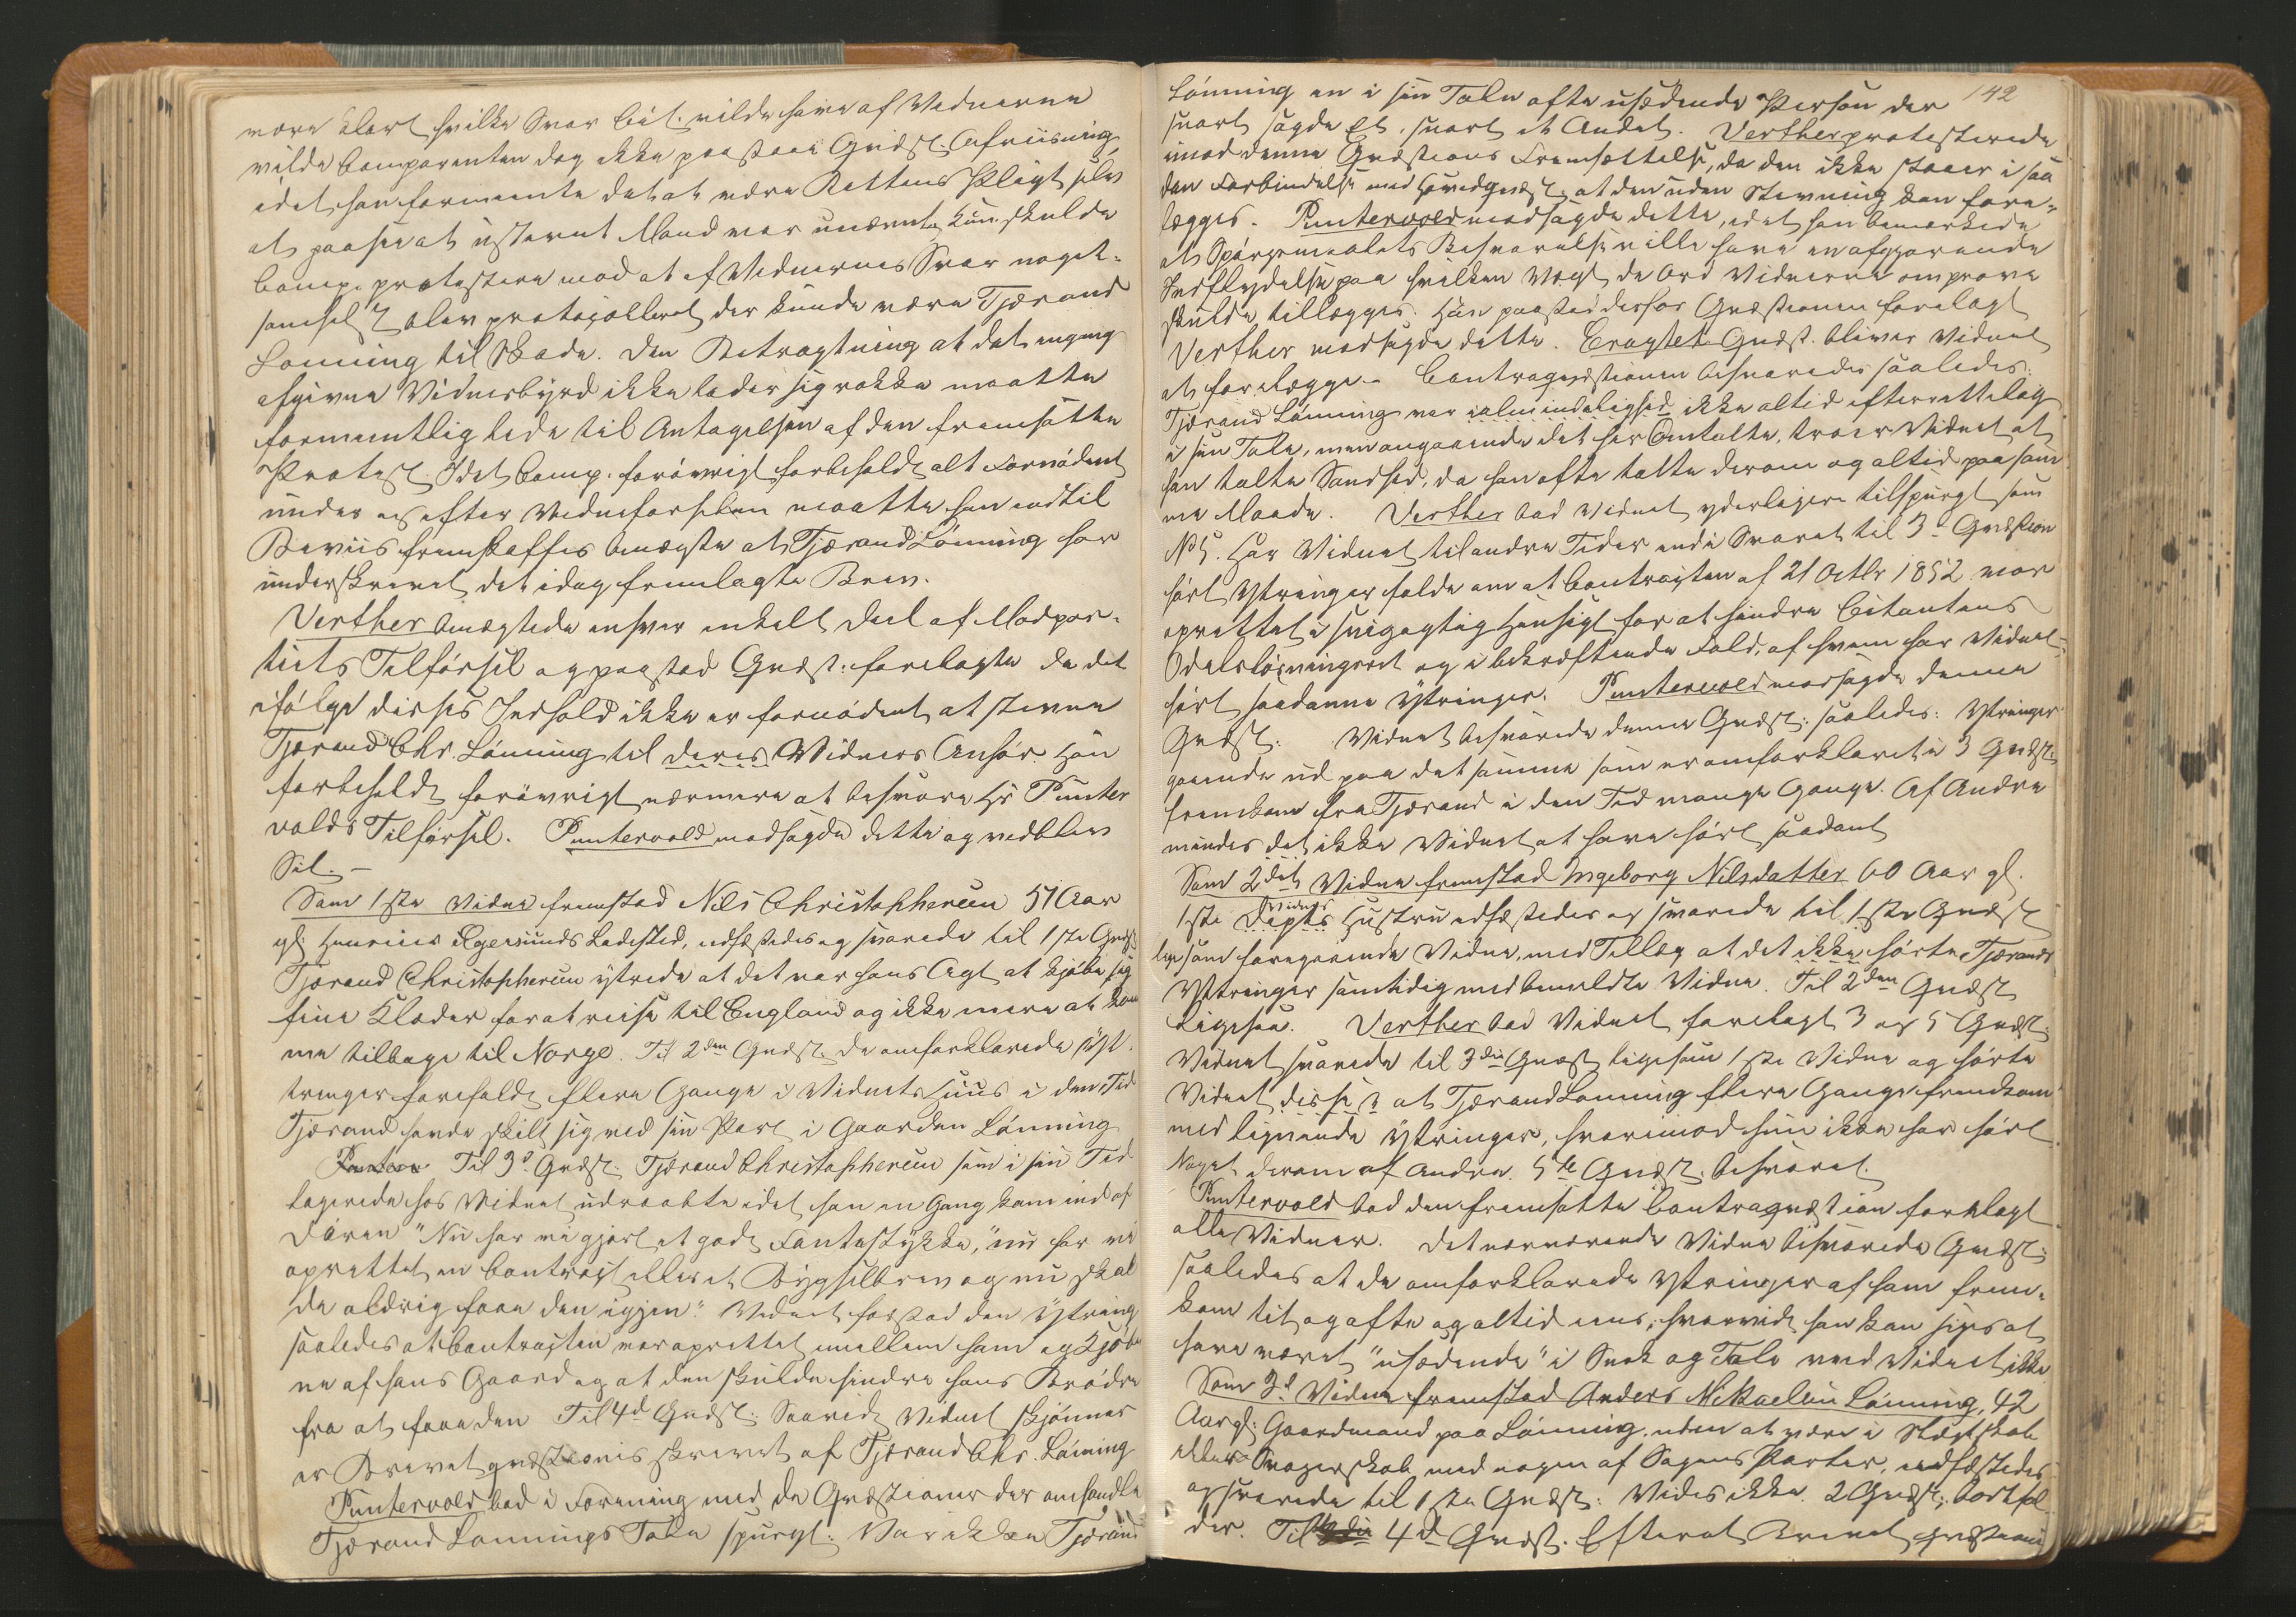 være klart hvilke Svar Cit. vilde have af Vidnerne
vilde Comparenten dog ikke paastaae Qvæst. Afviisning,
idet han formeente det at være Rettens Pligt selv
at paasee at ustevnt Mand var unævnt, kun skulde
Comp. protestere mod at af Vidnernes Svar noget-
somhelst blev protocolleret der kunde være Tjærand
Lønning til Skade. Den Betragtning at det engang
afgivne Vidnesbyrd ikke lader sig rokke maatte
formeentlig lede til Antagelsen af den fremsatte
Protest. Idet Comp. forøvrigt forbeholdt alt Fornødent
under og efter Vidneførselen maatte han indtil
Beviis fremskaffes benægte at Tjærand Lønning har
underskrevet det idag fremlagte Brev.
Verther benægtede enhver enkelt Deel af Modpar-
tiets Tilførsel og paastod Qvæst. forelagte da det
ifølge disses Indhold ikke er fornødent at stevne
Tjærand Chr. Lønning til deres Vidners Anhør. Han
forbeholdt forøvrigt nærmere at besvare Hr Punter
volds Tilførsel. Puntervold modsagde dette og vedblev
Sit. –
Som 1ste Vidne fremstod Nils Christophersen 51 Aar
gl. Huuseier Egersunds Ladested, edfæstedes og svarede til 1ste Qvæst.
Tjærand Christophersen ytrede at det var hans Agt at kjøbe sig
fine Klæder for at reise til England og ikke mere at kom
me tilbage til Norge. Til 2den Qvæst. De omforklarede Yt-
tringer forefaldt flere Gange i Vidnets Huus i den Tid
Tjærand havde skilt sig ved sin Part i Gaarden Lønning
Til 3d Qvæst. Tjærand Christophersen som i sin Tid
logerede hos Vidnet udraabte idet han en Gang kom ind af
Døren "Nu har vi gjort et godt Fantestykke", "nu har vi
oprettet en Contract eller et Bygselbrev og nu skal
de aldrig faae den igjen". Vidnet forstod den Ytring
saaledes at Contracten var oprettet mellem ham og Kjøbe
ren af hans Gaard og at den skulde hindre hans Brødre
fra at faae den Til 4d Qvæst. Saavidt Vidnet skjønner
er Brevet qvæstionis skrevet af Tjærand Chr. Lønning
Puntervold bad i Forening med de Qvæstioner der omhandle
Tjærand Lønnings Tale spurgt: Var ikke Tjærand
142
Lønning en i sin Tale ofte usædende Person der
snart sagde Et, snart et Andet. Verther protesterede
imod denne Qvæstions Fremsættelse, da den ikke staaer i saa
dan Forbindelse med Hovedqvæst. at den uden Stevning kan fore-
lægges. Puntervold modsagde dette, idet han bemærkede
at Spørgsmaalets Besvarelse ville have en afgjørende
Indflydelse paa hvilken Vægt de Ord Vidnerne omprove
skulde tillægges. Han paastod derfor Qvæstionen forelagt
Verther modsagde dette. Eragtet Qvæst. bliver Vidnet
at forelægge.– Contraqvæstionen besvaredes saaledes:
Tjærand Lønning var i almindelighed ikke altid efterrettelig
i sin Tale, men angaaende det her Omtalte, troer Vidnet at
han talte Sandhed, da han ofte talte derom og altid paa sam
me Maade. Verther bad Vidnet yderligere tilspurgt som
No 5. Har Vidnet til andre Tider end i Svaret til 3d Qvæstion
hørt Ytringer falde om at Contracten af 21 Octbr 1852 var
oprettet i svigagtig Hensigt for at hindre Citantens
Odelsløsningsret og i bekræftende Fald, af hvem har Vidnet
hørt saadanne Ytringer. Puntervold modsagde denne
Qvæst. Vidnet besvarede denne Qvæst. saaledes: Ytringer
gaaende ud paa det samme som er omforklaret i 3 Qvæst.
fremkom fra Tjærand i den Tid mange Gange. Af Andre
mindes det ikke Vidnet at have hørt saadant
Som 2det Vidne fremstod Ingeborg Nilsdatter 60 Aar gl.
1ste Vidnes Hustru edfæstedes og svarede til 1ste Qvæst
ligesom foregaaende Vidne, med Tillæg at det ikke hørte Tjærands
Yttringer samtidig med bemeldte Vidne. Til 2den Qvæst
Ligesaa. Verther bad Vidnet forelagt 3 og 5 Qvæst.
Vidnet svarede til 3die Qvæst ligesom 1ste Vidne og hørte
Vidnet at Tjærand Lønning flere Gange fremkom
med lignende Ytringer, hvorimod hun ikke har hørt
Noget derom af Andre. 5te Qvæst. besvaret.
Puntervold bad den fremsatte Contraqvæstion forelagt
alle Vidner. Det nærværende Vidne besvarede Qvæst.
saaledes at de omforklarede Ytringer af ham frem-
kom tit og ofte og altid eens, hvorvidt han kan siges at
have været "usædende" i Snak og Tale veed Vidnet ikke
Som 3d Vidne fremstod Anders Mikaelsen Lønning, 42
Aar gl. Gaardmand paa Lønning, uden at være i Slægtskab
eller Svogerskab med nogen af Sagens Parter, edfæstedes
og svarede til 1ste Qvæst. Vides ikke. 2 Qvæst. bortfal
der. Til 4d Qvæst. Efterat Brevet qvæstionis